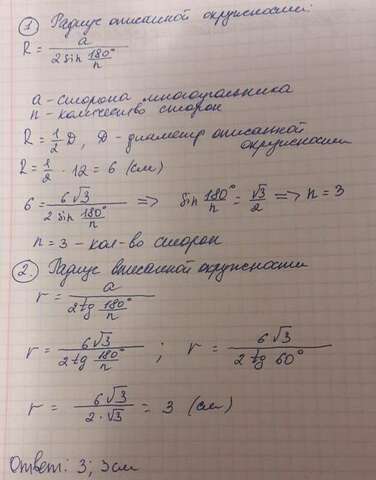 ① Радиус описанной окружности:
R = a / (2 sin 180°/n)
a - сторона многоугольника
n - количество сторон
R = 1/2 D, D - диаметр описанной
окружности
R = 1/2 · 12 = 6 (см)
6 = 6√3 / (2 sin 180°/n) => sin 180°/n = √3/2 => n = 3
n = 3 - кол-во сторон
②. Радиус вписанной окружности
r = a / (2 tg 180°/n)
r = 6√3 / (2 tg 180°/n) ; r = 6√3 / (2 tg 60°)
r = 6√3 / (2·√3) = 3 (см)
Ответ: 3; 3см